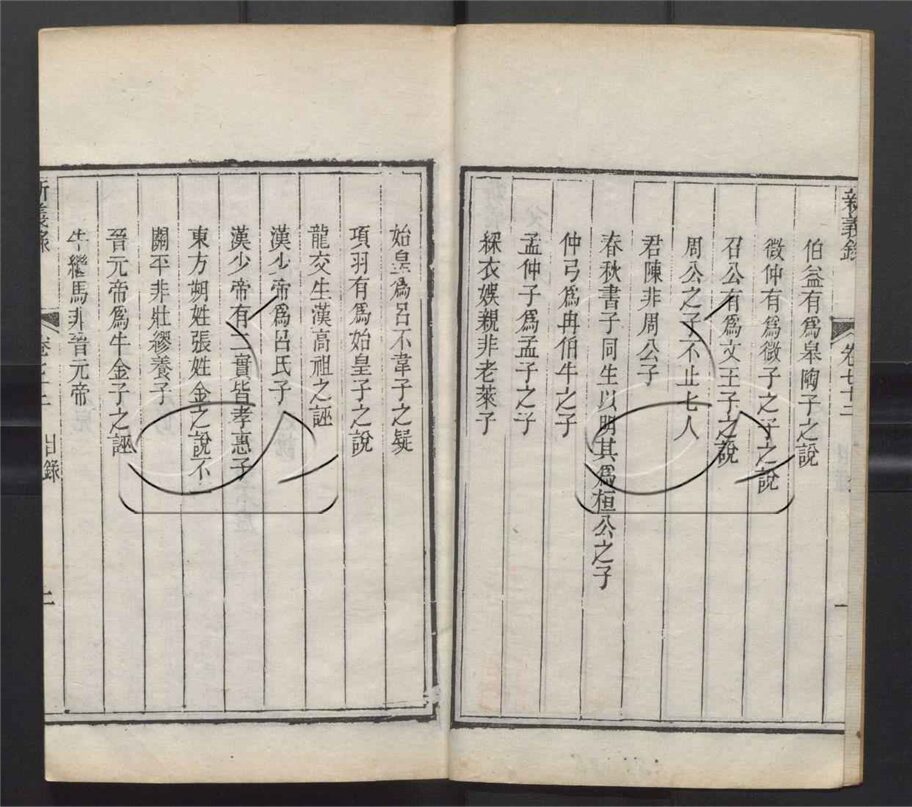 新義錄
卷七十二
一
伯益有爲皋陶子之說
微仲有爲微子之子之說
召公有爲文王子之說
周公之子不止七人
君陳非周公子
春秋書子同生以明其爲桓公之子
仲弓爲冉伯牛之子
孟仲子爲孟子之子
綵衣娛親非老萊子
始皇爲呂不韋子之疑
項羽有爲始皇子之說
龍交生漢高祖之誣
漢少帝爲呂氏子
漢少帝有二實皆孝惠子
東方朔姓張姓金之說不一
關平非壯繆養子
晉元帝爲牛金子之誣
牛繼馬非晉元帝
新義錄
卷七十二
目錄
二